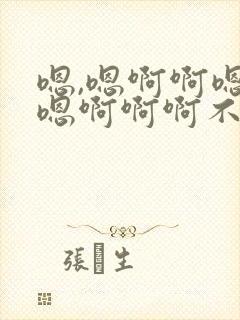 嗯,嗯啊啊嗯
嗯啊啊啊不
張 生